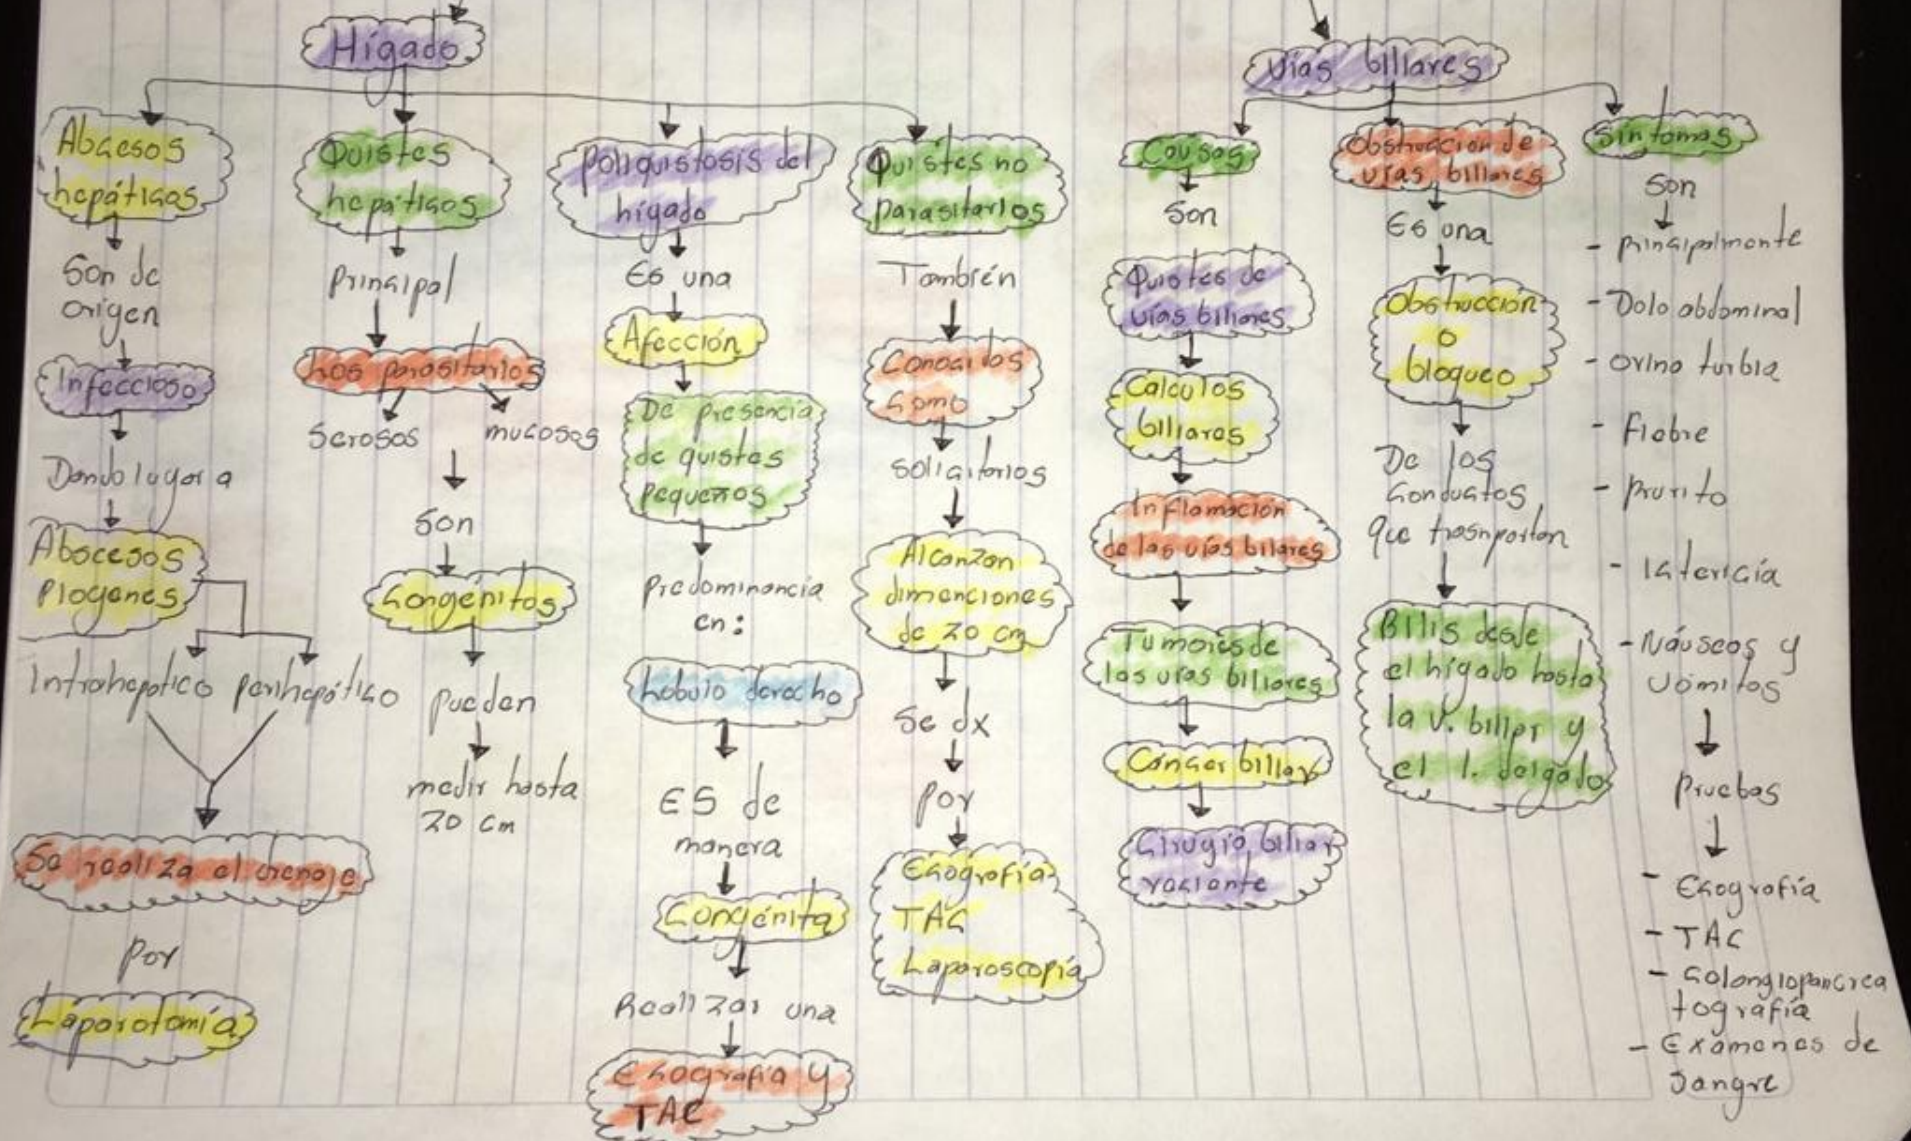 Hígado
Abscesos
hepáticos
Son de
origen
Infeccioso
Dando lugar a
Abscesos
Piogenes
Intrahepático perihepático
Se realiza el drenaje
por
Laparotomía
Quistes
hepáticos
Principal
Los parasitarios
Serosos mucosos
Son
Congénitos
pueden
medir hasta
20 cm
poliquistosis del
hígado
Es una
Afección
De presencia
de quistes
pequeños
Predominancia
en:
Lobulo derecho
ES de
manera
Congénita
Realizar una
Ecografía y
TAC
Quistes no
parasitarios
También
Conocidos
como
solicitarios
Alcanzan
dimenciones
de 20 cm
Se dx
por
Ecografía
TAC
Laparoscopía
Vías biliares
Causas
Son
Quistes de
vías biliares
Cálculos
biliares
Inflamación
de las vías bilares
Tumores de
las vías biliares
Cancer biliar
Cirugía biliar
raciante
Obstrucción de
vías biliares
Es una
Obstrucción
o
bloqueo
De los
conductos
que trasnportan
Bilis desde
el hígado hasta
la v. biliar y
el I. delgado
Sintomas
Son
- principalmente
- Dolo abdominal
- orina turbia
- Fiebre
- prurito
- Ictericia
- Náuseas y
vómitos
Pruebas
- Ecografía
- TAC
- Colangiopancrea
tografía
- Exámenes de
sangre